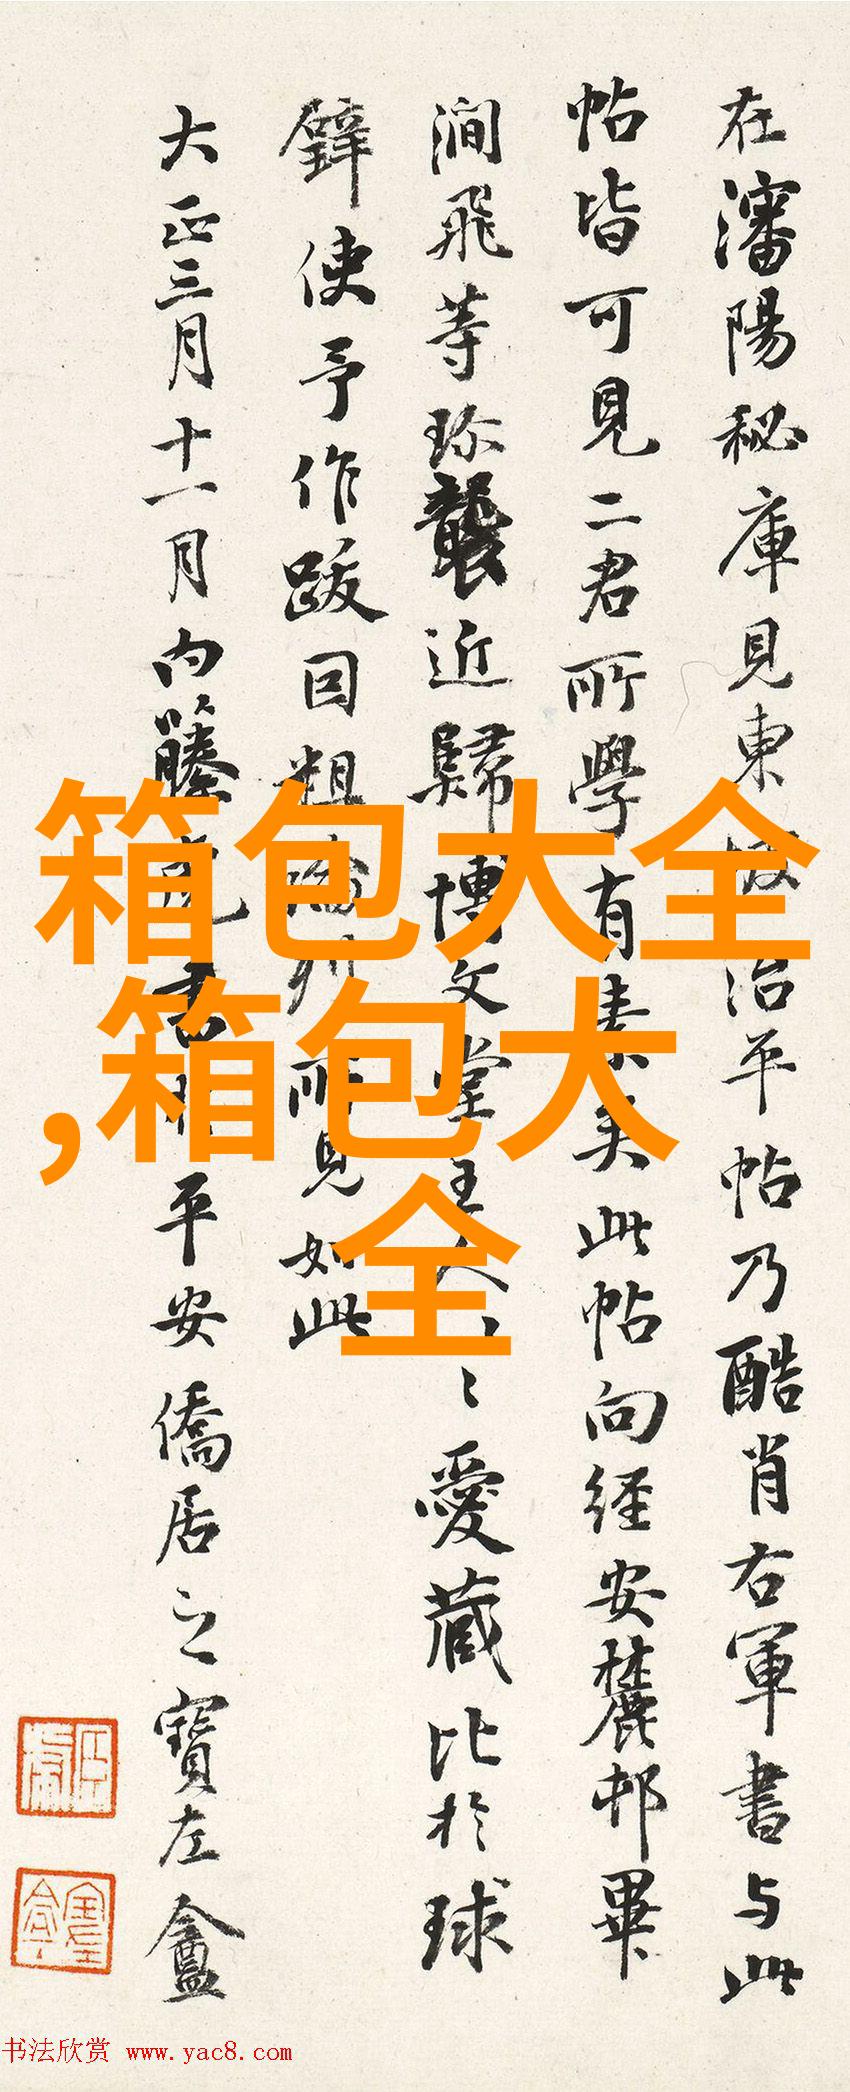 在瀋陽秘庫見東坡治平帖乃酷肖右軍書与此
帖皆可見二君所學有素矣此帖向経安麓邨畢
澗飛等珎襲近歸博文堂主人〻〻愛蔵比於球
璧使予作跋因粗論列所見如此
大正三月十一月内藤虎書於平安僑居之寶左盦
箱包大全
,箱包大
全
書法欣赏 www.yac8.com